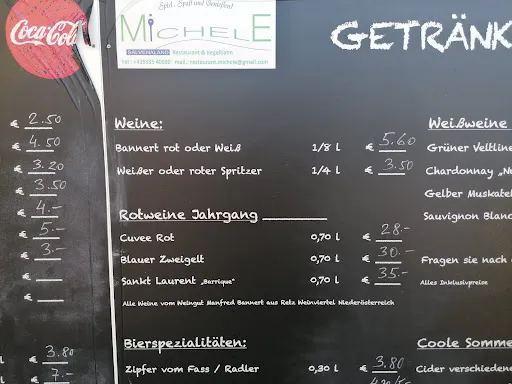 Coca-Cola
Spiel, Spaß und Genießen!
MichelE
SILVENALAND Restaurant & Kegelbahn
mail.: restaurant.michele@gmail.com
GETRÄNK
€ 2.50
€ 4.50
€ 3.20
€ 3.50
€ 4.-
€ 5.-
€ 3.-
€
€
€ 3.80
€ 7.-
Weine:
Bannert rot oder Weiß 1/8 l € 5.60
Weißer oder roter Spritzer 1/4 l € 3.50
Rotweine Jahrgang
Cuvee Rot 0,70 l € 28.-
Blauer Zweigelt 0,70 l € 30.-
Sankt Laurent „Barrique" 0,70 l € 35.-
Alle Weine vom Weingut Manfred Bannert aus Retz Weinviertel Niederösterreich
Bierspezialitäten:
Zipfer vom Fass / Radler 0,30 l € 3.80
Weißweine
Grüner Veltline
Chardonnay „Nu
Gelber Muskatel
Sauvignon Blanc
Fragen sie nach
Alles Inklusivpreise
Coole Somme
Cider verschiedene